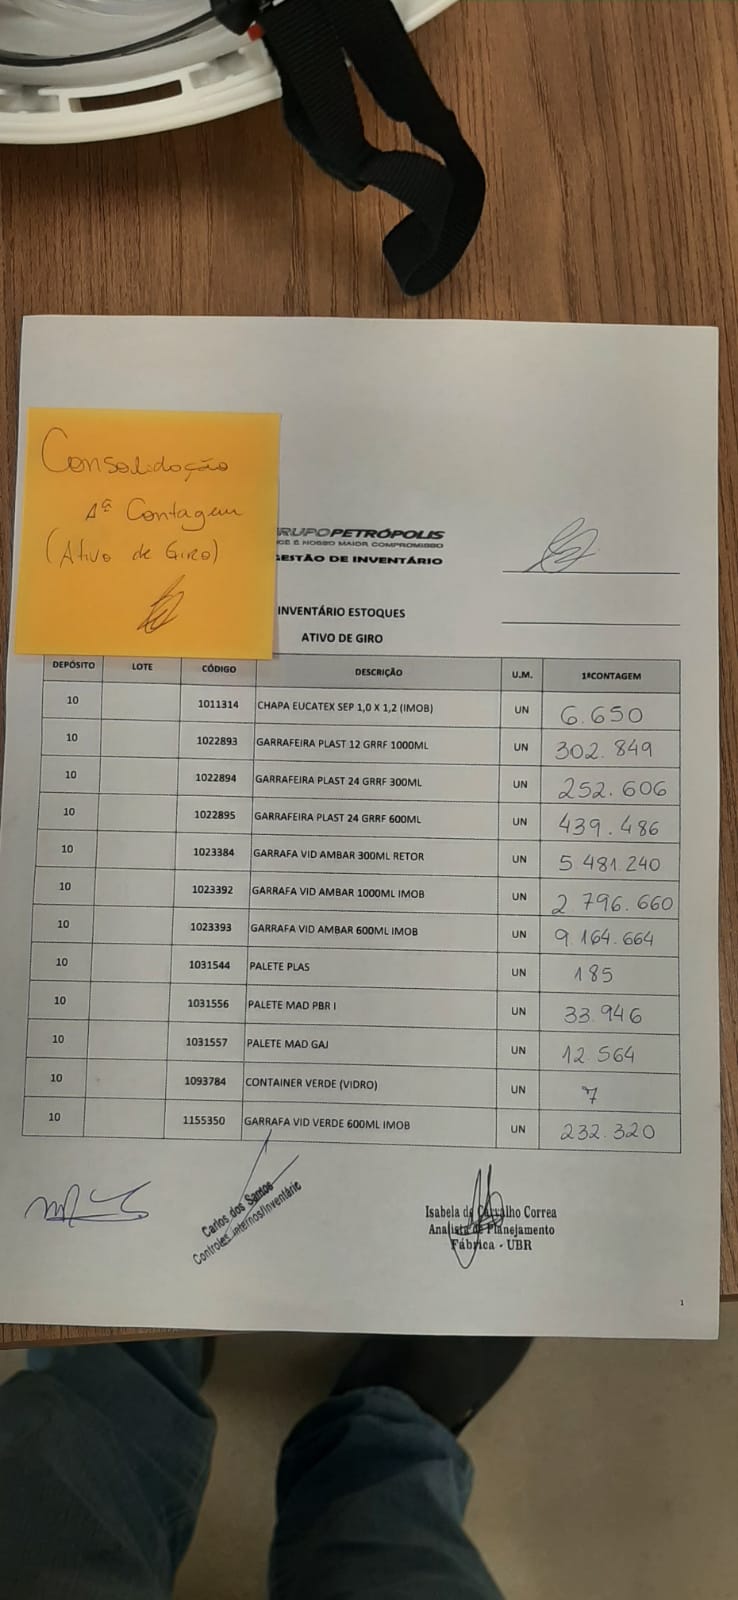 Consolidação
1ª Contagem
(Ativo de Giro)
RUPOPETRÓPOLIS
CE É NOSSO MAIOR COMPROMISSO
ESTÃO DE INVENTÁRIO
INVENTÁRIO ESTOQUES
ATIVO DE GIRO
DEPÓSITO LOTE CÓDIGO DESCRIÇÃO U.M. 1ªCONTAGEM
10 1011314 CHAPA EUCATEX SEP 1,0 X 1,2 (IMOB) UN 6.650
10 1022893 GARRAFEIRA PLAST 12 GRRF 1000ML UN 302.849
10 1022894 GARRAFEIRA PLAST 24 GRRF 300ML UN 252.606
10 1022895 GARRAFEIRA PLAST 24 GRRF 600ML UN 439.486
10 1023384 GARRAFA VID AMBAR 300ML RETOR UN 5.481.240
10 1023392 GARRAFA VID AMBAR 1000ML IMOB UN 2.796.660
10 1023393 GARRAFA VID AMBAR 600ML IMOB UN 9.164.664
10 1031544 PALETE PLAS UN 185
10 1031556 PALETE MAD PBR I UN 33.946
10 1031557 PALETE MAD GAJ UN 12.564
10 1093784 CONTAINER VERDE (VIDRO) UN 7
10 1155350 GARRAFA VID VERDE 600ML IMOB UN 232.320
Carlos dos Santos
Controles Internos/Inventário
Isabela de Carvalho Correa
Analista de Planejamento
Fábrica - UBR
1